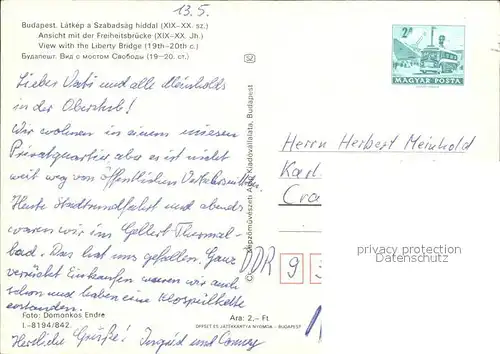 13.5.
Budapest. Látkép a Szabadság híddal (XIX-XX. sz.)
Ansicht mit der Freiheitsbrücke (XIX-XX. Jh.)
View with the Liberty Bridge (19th-20th c.)
Будапешт. Вид с мостом Свободы (19-20. ст.)
Liebes Vati und alle Meinholds
in der Oberstub!
Wir wohnen in einem miesen
Privatquartier, aber es ist nicht
weit weg von öffentlichen Verkehrsmitteln.
Heute Stadtrundfahrt und abends
waren wir im Gellert Thermal-
bad. Das hat uns gefallen. Ganz
verrückt Einkaufen waren wir auch
schon und haben eine Klospülkette
erstanden.
Foto: Domonkos Endre
I.-8194/842.
Ara: 2,- Ft
Herzliche Grüße! Ingrid und Conny
OFFSET ÉS JÁTÉKKÁRTYA NYOMDA - BUDAPEST
Képzőművészeti Alap Kiadóvállalata, Budapest
2 Ft
MAGYAR POSTA
Herrn Herbert Meinhold
Karl.
Cra
DDR 9
privacy protection
Datenschutz